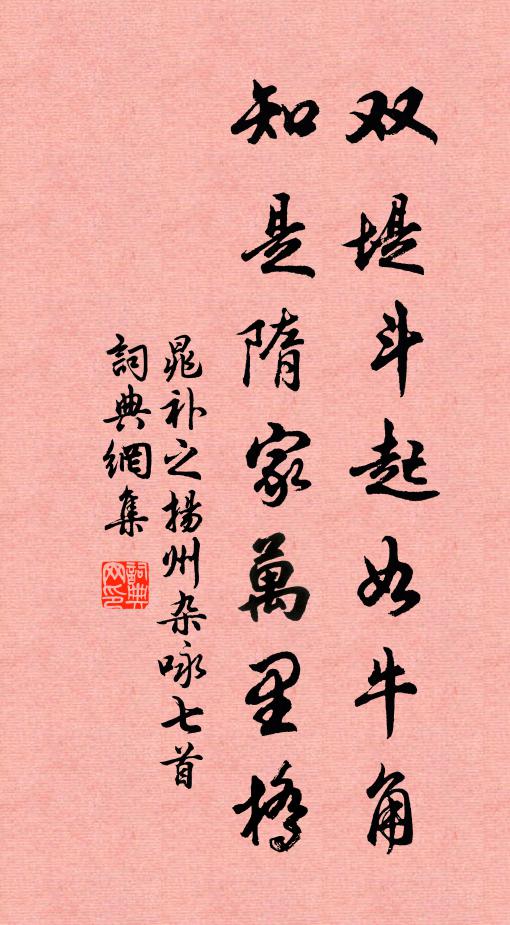 双堤斗起如牛角
知是隋家萬里橋
晁补之扬州杂咏七首
詞典網集
詞典网印